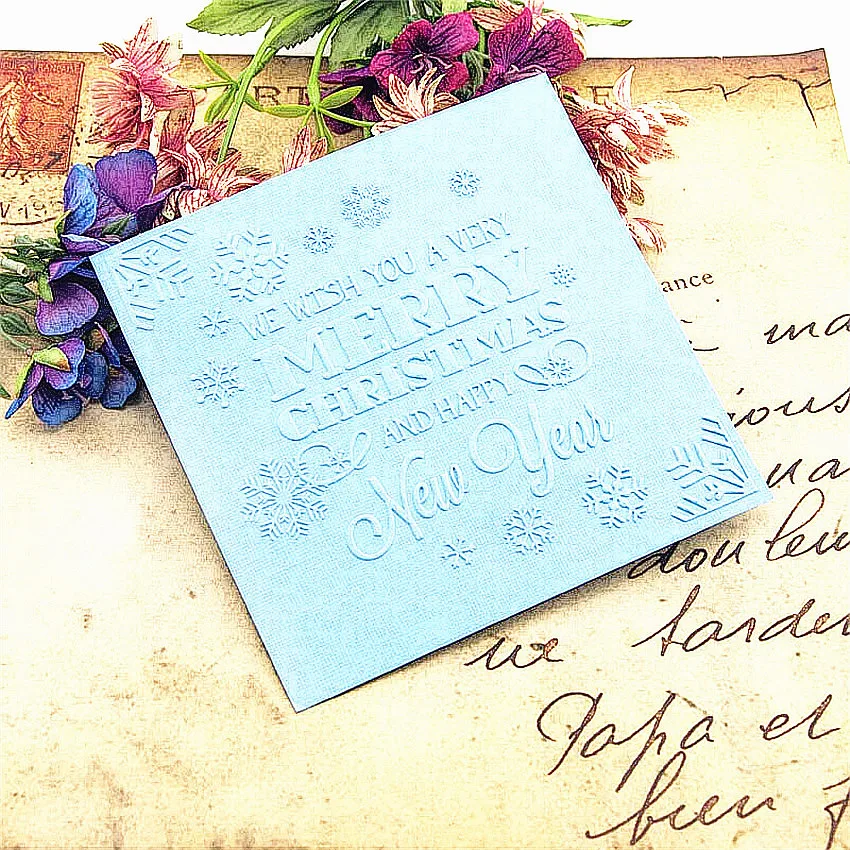 WE WISH YOU A VERY
MERRY
CHRISTMAS
AND HAPPY
New Year
ance
ma
ious
ua
douleu
ne tarder
Papa et
bien